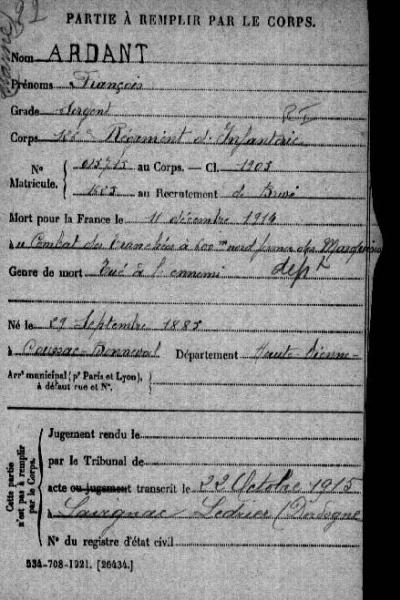 PARTIE À REMPLIR PAR LE CORPS.
Nom ARDANT
Prénoms François
Grade Sergent
R I
Corps Régiment d'Infanterie
No Matricule. 015715 au Corps. — Cl. 1905
1505 au Recrutement de Brive
Mort pour la France le 11 décembre 1914
au Combat des tranchées à 600m nord
Genre de mort Tué à l'ennemi
dépt
Né le 29 Septembre 1885
à Coussac-Bonneval Département Haute Vienne
Arrt municipal (pr Paris et Lyon), à défaut rue et No.
Cette partie n'est pas à remplir par le Corps.
Jugement rendu le
par le Tribunal de
acte ou jugement transcrit le 22 Octobre 1915
à Savignac Ledrier (Dordogne
No du registre d'état civil
534-708-1921. [26434.]